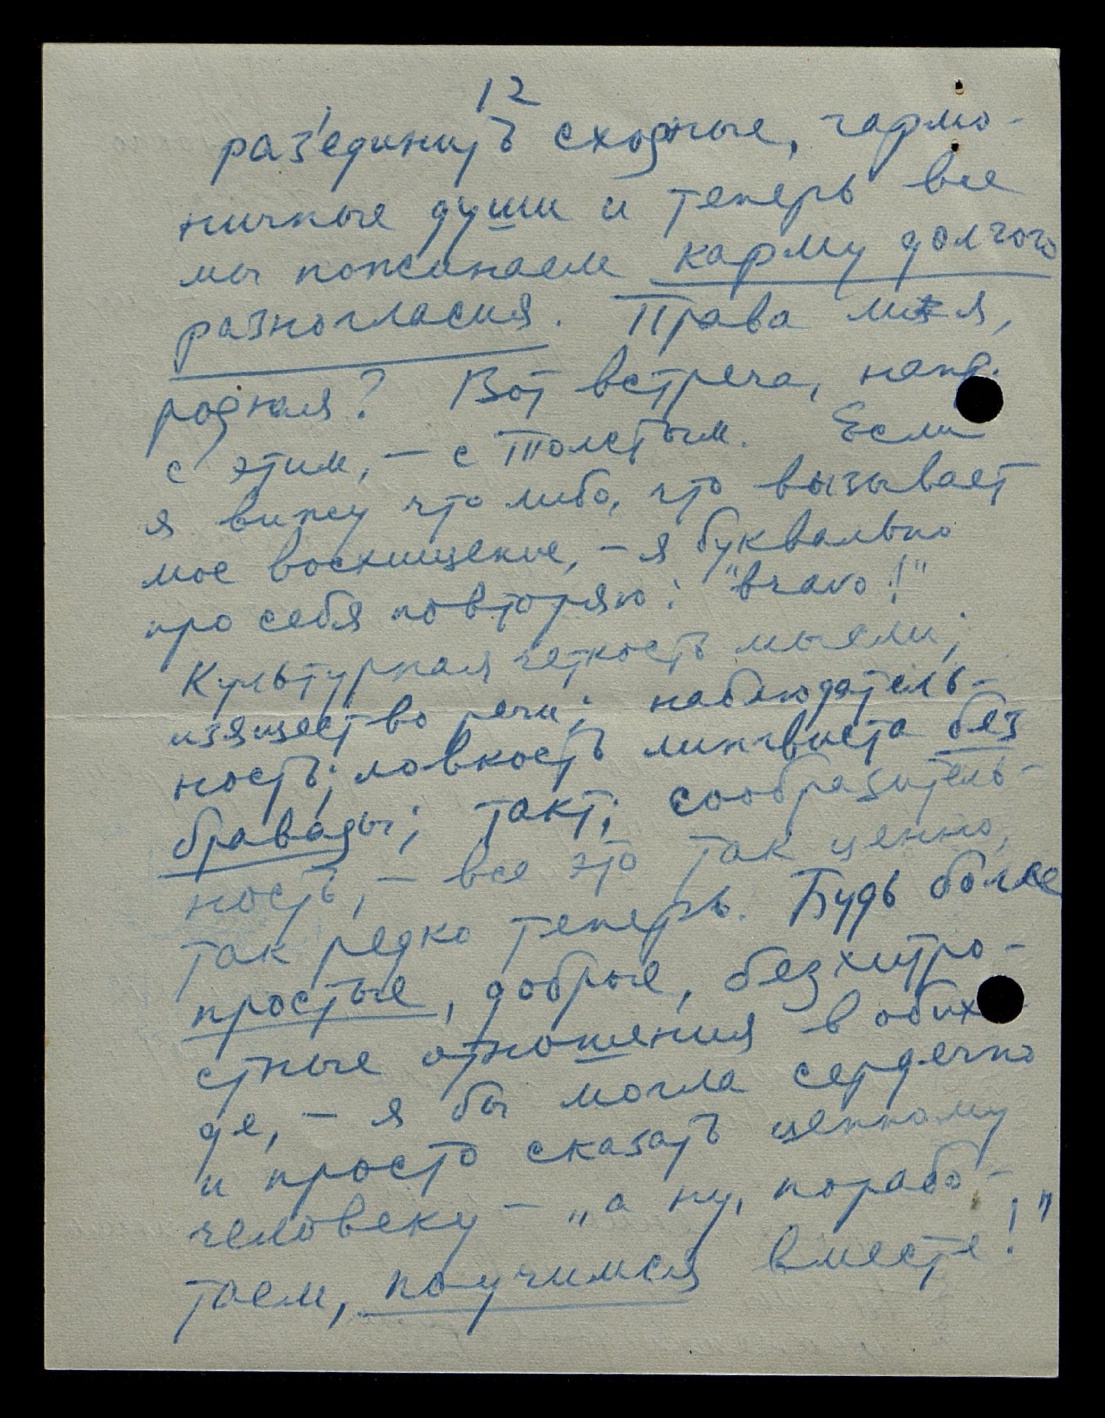 12
раз'единить сходные, гармо-
ничные души и теперь все
мы пожинаем карму долгого
разногласия. Права ли я,
родная? Вот встреча, напр.
с этим, — с Толстым. Если
я вижу что либо, что вызывает
мое восхищение, — я буквально
про себя повторяю: "браво!"
Культурная четкость мысли;
изящество речи; наблюдатель-
ность; ловкость лингвиста без
бравады; такт; сообразитель-
ность, — все это так ценно,
так редко теперь. Будь более
простые, добрые, безхитро-
стные отношения в обихо-
де, — я бы могла сердечно
и просто сказать ценному
человеку — „а ну, порабо-
таем, поучимся вместе!"